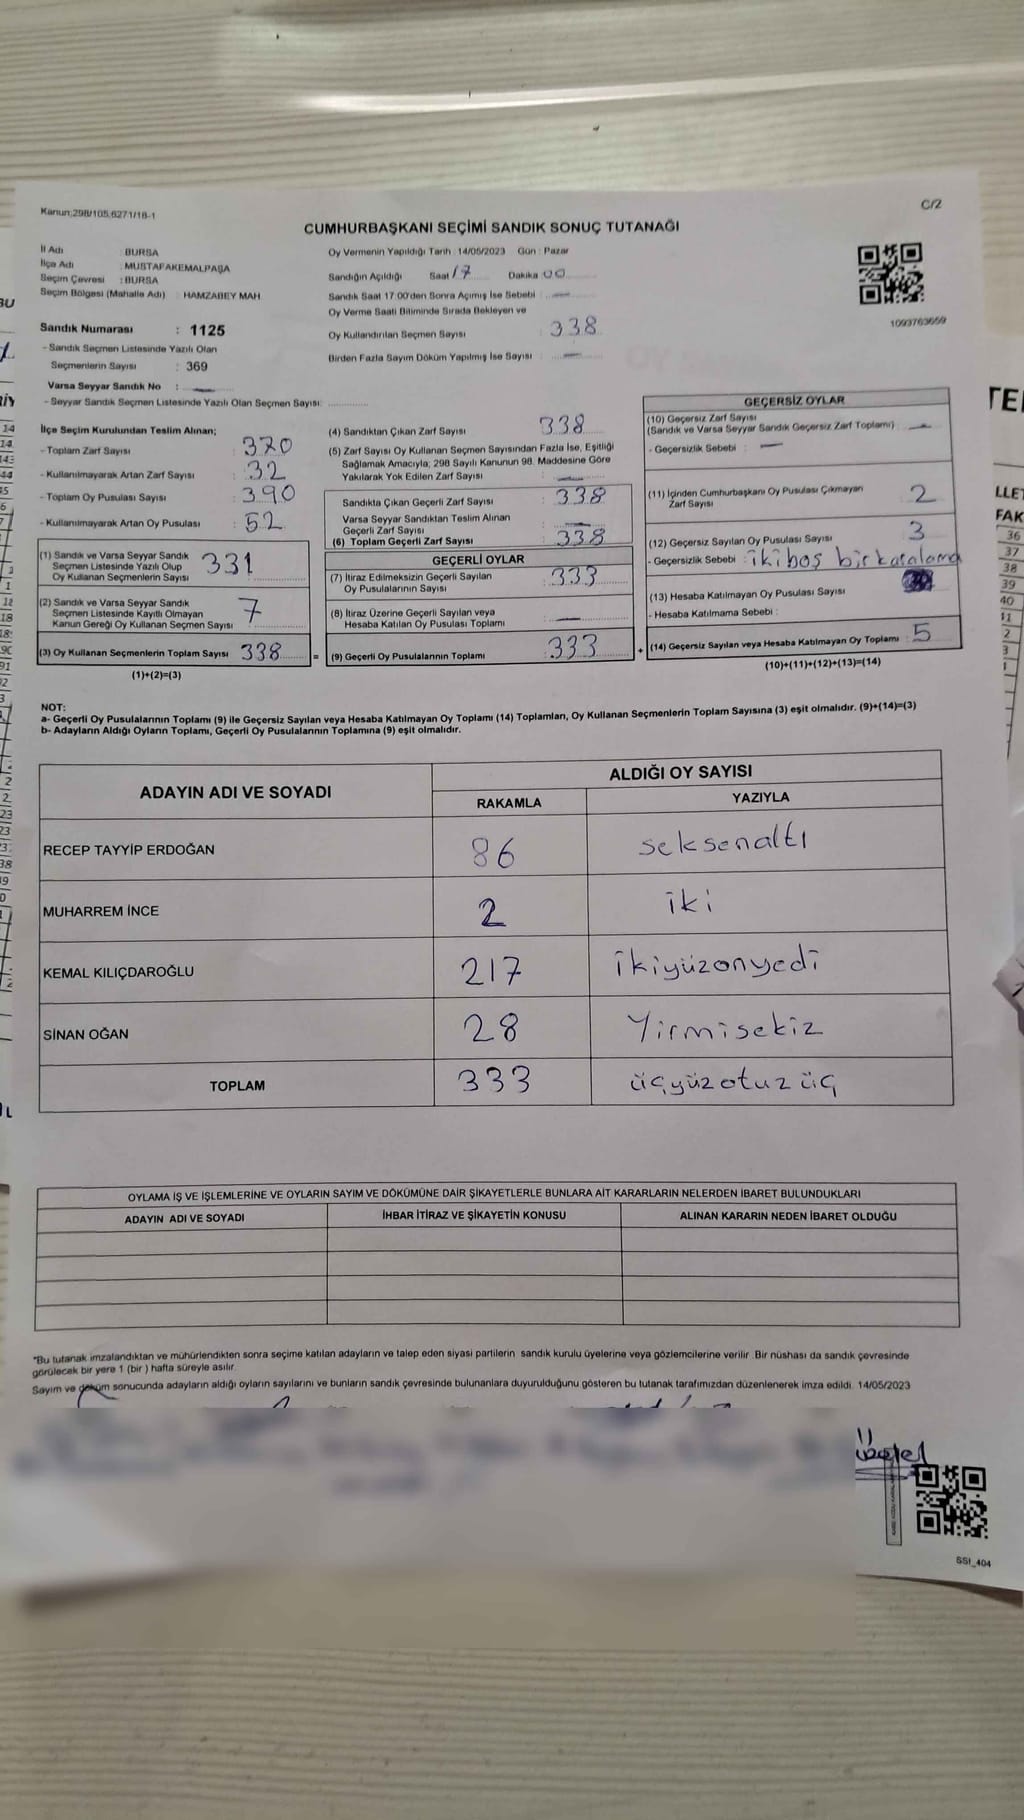 Kanun;298/105,6271/18-1
C/2
CUMHURBAŞKANI SEÇİMİ SANDIK SONUÇ TUTANAĞI
İl Adı : BURSA
İlçe Adı : MUSTAFAKEMALPAŞA
Seçim Çevresi : BURSA
Seçim Bölgesi (Mahalle Adı) : HAMZABEY MAH.
Sandık Numarası : 1125
- Sandık Seçmen Listesinde Yazılı Olan
Seçmenlerin Sayısı : 369
Varsa Seyyar Sandık No : —
- Seyyar Sandık Seçmen Listesinde Yazılı Olan Seçmen Sayısı: ..............
Oy Vermenin Yapıldığı Tarih : 14/05/2023 Gün : Pazar
Sandığın Açıldığı Saat 17 Dakika 00
Sandık Saat 17:00'den Sonra Açımış İse Sebebi : —
Oy Verme Saati Bitiminde Sırada Bekleyen ve
Oy Kullandırılan Seçmen Sayısı : 338
Birden Fazla Sayım Döküm Yapılmış İse Sayısı : —
1093763659
İlçe Seçim Kurulundan Teslim Alınan;
- Toplam Zarf Sayısı : 370
- Kullanılmayarak Artan Zarf Sayısı : 32
- Toplam Oy Pusulası Sayısı : 390
- Kullanılmayarak Artan Oy Pusulası : 52
(1) Sandık ve Varsa Seyyar Sandık
Seçmen Listesinde Yazılı Olup
Oy Kullanan Seçmenlerin Sayısı 331
(2) Sandık ve Varsa Seyyar Sandık
Seçmen Listesinde Kayıtlı Olmayan
Kanun Gereği Oy Kullanan Seçmen Sayısı 7
(3) Oy Kullanan Seçmenlerin Toplam Sayısı 338 =
(1)+(2)=(3)
(4) Sandıktan Çıkan Zarf Sayısı 338
(5) Zarf Sayısı Oy Kullanan Seçmen Sayısından Fazla İse, Eşitliği
Sağlamak Amacıyla; 298 Sayılı Kanunun 98. Maddesine Göre
Yakılarak Yok Edilen Zarf Sayısı : —
Sandıkta Çıkan Geçerli Zarf Sayısı : 338
Varsa Seyyar Sandıktan Teslim Alınan
Geçerli Zarf Sayısı : —
(6) Toplam Geçerli Zarf Sayısı : 338
GEÇERLİ OYLAR
(7) İtiraz Edilmeksizin Geçerli Sayılan
Oy Pusulalarının Sayısı : 333
(8) İtiraz Üzerine Geçerli Sayılan veya
Hesaba Katılan Oy Pusulası Toplamı : —
(9) Geçerli Oy Pusulalarının Toplamı 333 +
GEÇERSİZ OYLAR
(10) Geçersiz Zarf Sayısı
(Sandık ve Varsa Seyyar Sandık Geçersiz Zarf Toplamı) : —
- Geçersizlik Sebebi : —
(11) İçinden Cumhurbaşkanı Oy Pusulası Çıkmayan
Zarf Sayısı 2
(12) Geçersiz Sayılan Oy Pusulası Sayısı 3
- Geçersizlik Sebebi : iki boş bir karalama
(13) Hesaba Katılmayan Oy Pusulası Sayısı
- Hesaba Katılmama Sebebi :
(14) Geçersiz Sayılan veya Hesaba Katılmayan Oy Toplamı : 5
(10)+(11)+(12)+(13)=(14)
NOT:
a- Geçerli Oy Pusulalarının Toplamı (9) ile Geçersiz Sayılan veya Hesaba Katılmayan Oy Toplamı (14) Toplamları, Oy Kullanan Seçmenlerin Toplam Sayısına (3) eşit olmalıdır. (9)+(14)=(3)
b- Adayların Aldığı Oyların Toplamı, Geçerli Oy Pusulalarının Toplamına (9) eşit olmalıdır.
ADAYIN ADI VE SOYADI
ALDIĞI OY SAYISI
RAKAMLA YAZIYLA
RECEP TAYYİP ERDOĞAN 86 seksenaltı
MUHARREM İNCE 2 iki
KEMAL KILIÇDAROĞLU 217 ikiyüzonyedi
SİNAN OĞAN 28 Yirmisekiz
TOPLAM 333 üçyüzotuz üç
OYLAMA İŞ VE İŞLEMLERİNE VE OYLARIN SAYIM VE DÖKÜMÜNE DAİR ŞİKAYETLERLE BUNLARA AİT KARARLARIN NELERDEN İBARET BULUNDUKLARI
ADAYIN ADI VE SOYADI İHBAR İTİRAZ VE ŞİKAYETİN KONUSU ALINAN KARARIN NEDEN İBARET OLDUĞU
*Bu tutanak imzalandıktan ve mühürlendikten sonra seçime katılan adayların ve talep eden siyasi partilerin sandık kurulu üyelerine veya gözlemcilerine verilir. Bir nüshası da sandık çevresinde
görülecek bir yere 1 (bir ) hafta süreyle asılır.
Sayım ve döküm sonucunda adayların aldığı oyların sayılarını ve bunların sandık çevresinde bulunanlara duyurulduğunu gösteren bu tutanak tarafımızdan düzenlenerek imza edildi. 14/05/2023
SSI_404